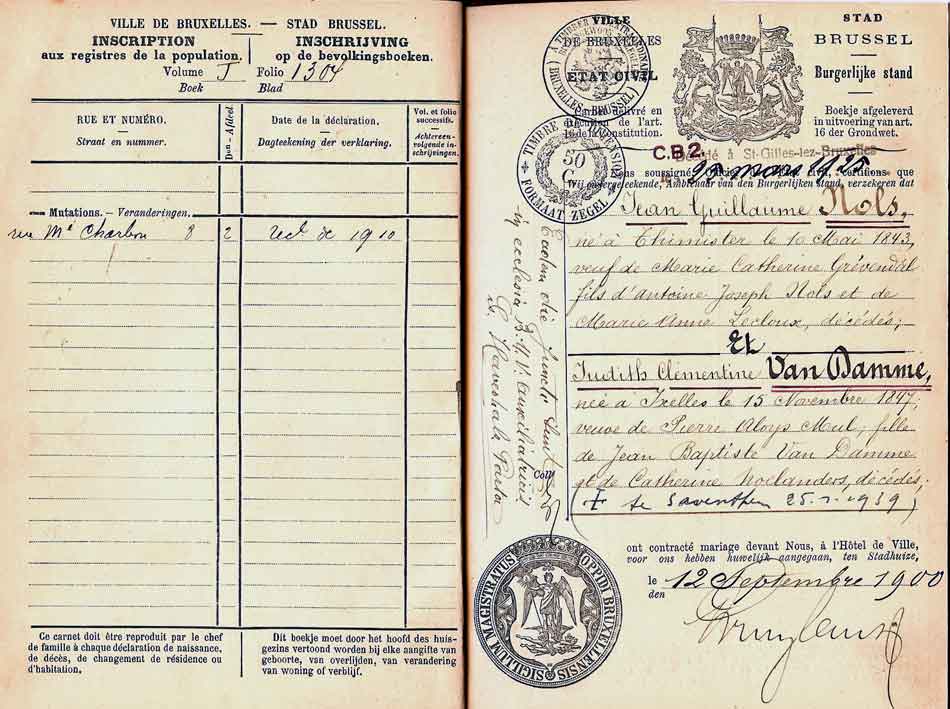 VILLE DE BRUXELLES. — STAD BRUSSEL.
INSCRIPTION
aux registres de la population.
INSCHRIJVING
op de bevolkingsboeken.
Volume J Folio 1304
Boek Blad
RUE ET NUMÉRO.
Straat en nummer.
Don - Afdeel.
Date de la déclaration.
Dagteekening der verklaring.
Vol. et folio
successifs.
Achtereen-
volgende in-
schrijvingen.
Mutations. — Veranderingen.
rue Me Charbon 8 2 de 1910
Ce carnet doit être reproduit par le chef
de famille à chaque déclaration de naissance,
de décès, de changement de résidence ou
d'habitation.
Dit boekje moet door het hoofd des huis-
gezins vertoond worden bij elke aangifte van
geboorte, van overlijden, van verandering
van woning of verblijf.
VILLE
DE BRUXELLES
ÉTAT CIVIL
Carnet délivré en
exécution de l'art.
16 de la Constitution.
STAD
BRUSSEL
Burgerlijke stand
Boekje afgeleverd
in uitvoering van art.
16 der Grondwet.
(BRUXELLES - BRUSSEL)
TIMBRE DE DIMENSION
50
C.
FORMAAT ZEGEL
C.B2.
Décédé à St-Gilles-lez-Bruxelles
le 20 mars 1925
Nous soussigné, Officier de l'Etat civil, certifions que
Wij ondergeteekende, Ambtenaar van den Burgerlijken stand, verzekeren dat
Jean Guillaume Nols,
né à Thimister le 10 Mai 1843,
veuf de Marie Catherine Grévendal
fils d'antoine Joseph Nols et de
Marie Anne Lecloux, décédés;
Et
Judith Clémentine Van Damme,
née à Ixelles le 15 Novembre 1847,
veuve de Pierre Aloys Mul, fille
de Jean Baptiste Van Damme
et de Catherine Roelanders, décédés;
(† te Saventhem 25.1.1939)
Eadem die juncti sunt
in ecclesia B.M.V. auxiliatricis
Coll
ont contracté mariage devant Nous, à l'Hôtel de Ville,
voor ons hebben huwelijk aangegaan, ten Stadhuize,
le
den 12 Septembre 1900
SIGILLUM MAGISTRATUS OPPIDI BRUXELLENSIS